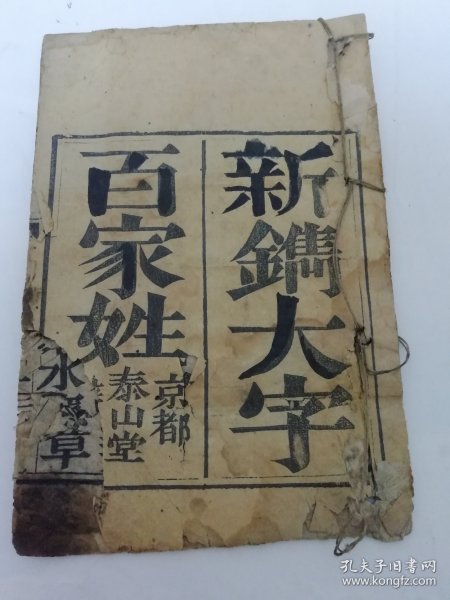 新鐫大字
百家姓
京都
泰山堂
水
章
孔夫子旧书网
www.kongfz.com